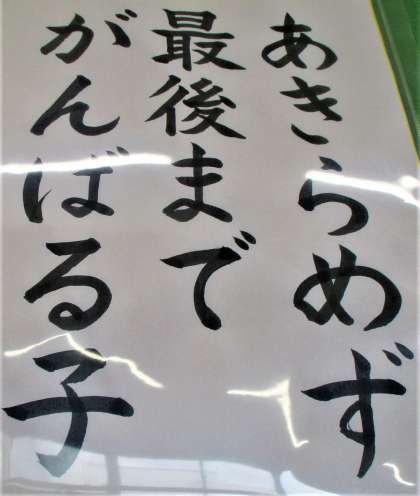 あきらめず
最後まで
がんばる子